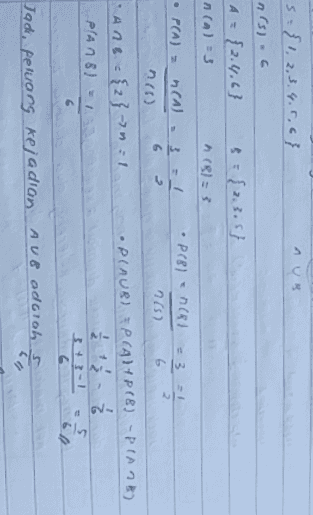 S = {1,2,3,4,5,6} A ∪ B
n(S) = 6
A = {2,4,6} B = {2,3,5}
n(A) = 3 n(B) = 3
• P(A) = n(A)/n(S) = 3/6 = 1/2 • P(B) = n(B)/n(S) = 3/6 = 1/2
• A ∩ B = {2} → n = 1 • P(A∪B) = P(A) + P(B) - P(A∩B)
P(A∩B) = 1/6 1/2 + 1/2 - 1/6
3+3-1/6 = 5/6 //
Jadi, peluang kejadian A∪B adalah 5/6 //